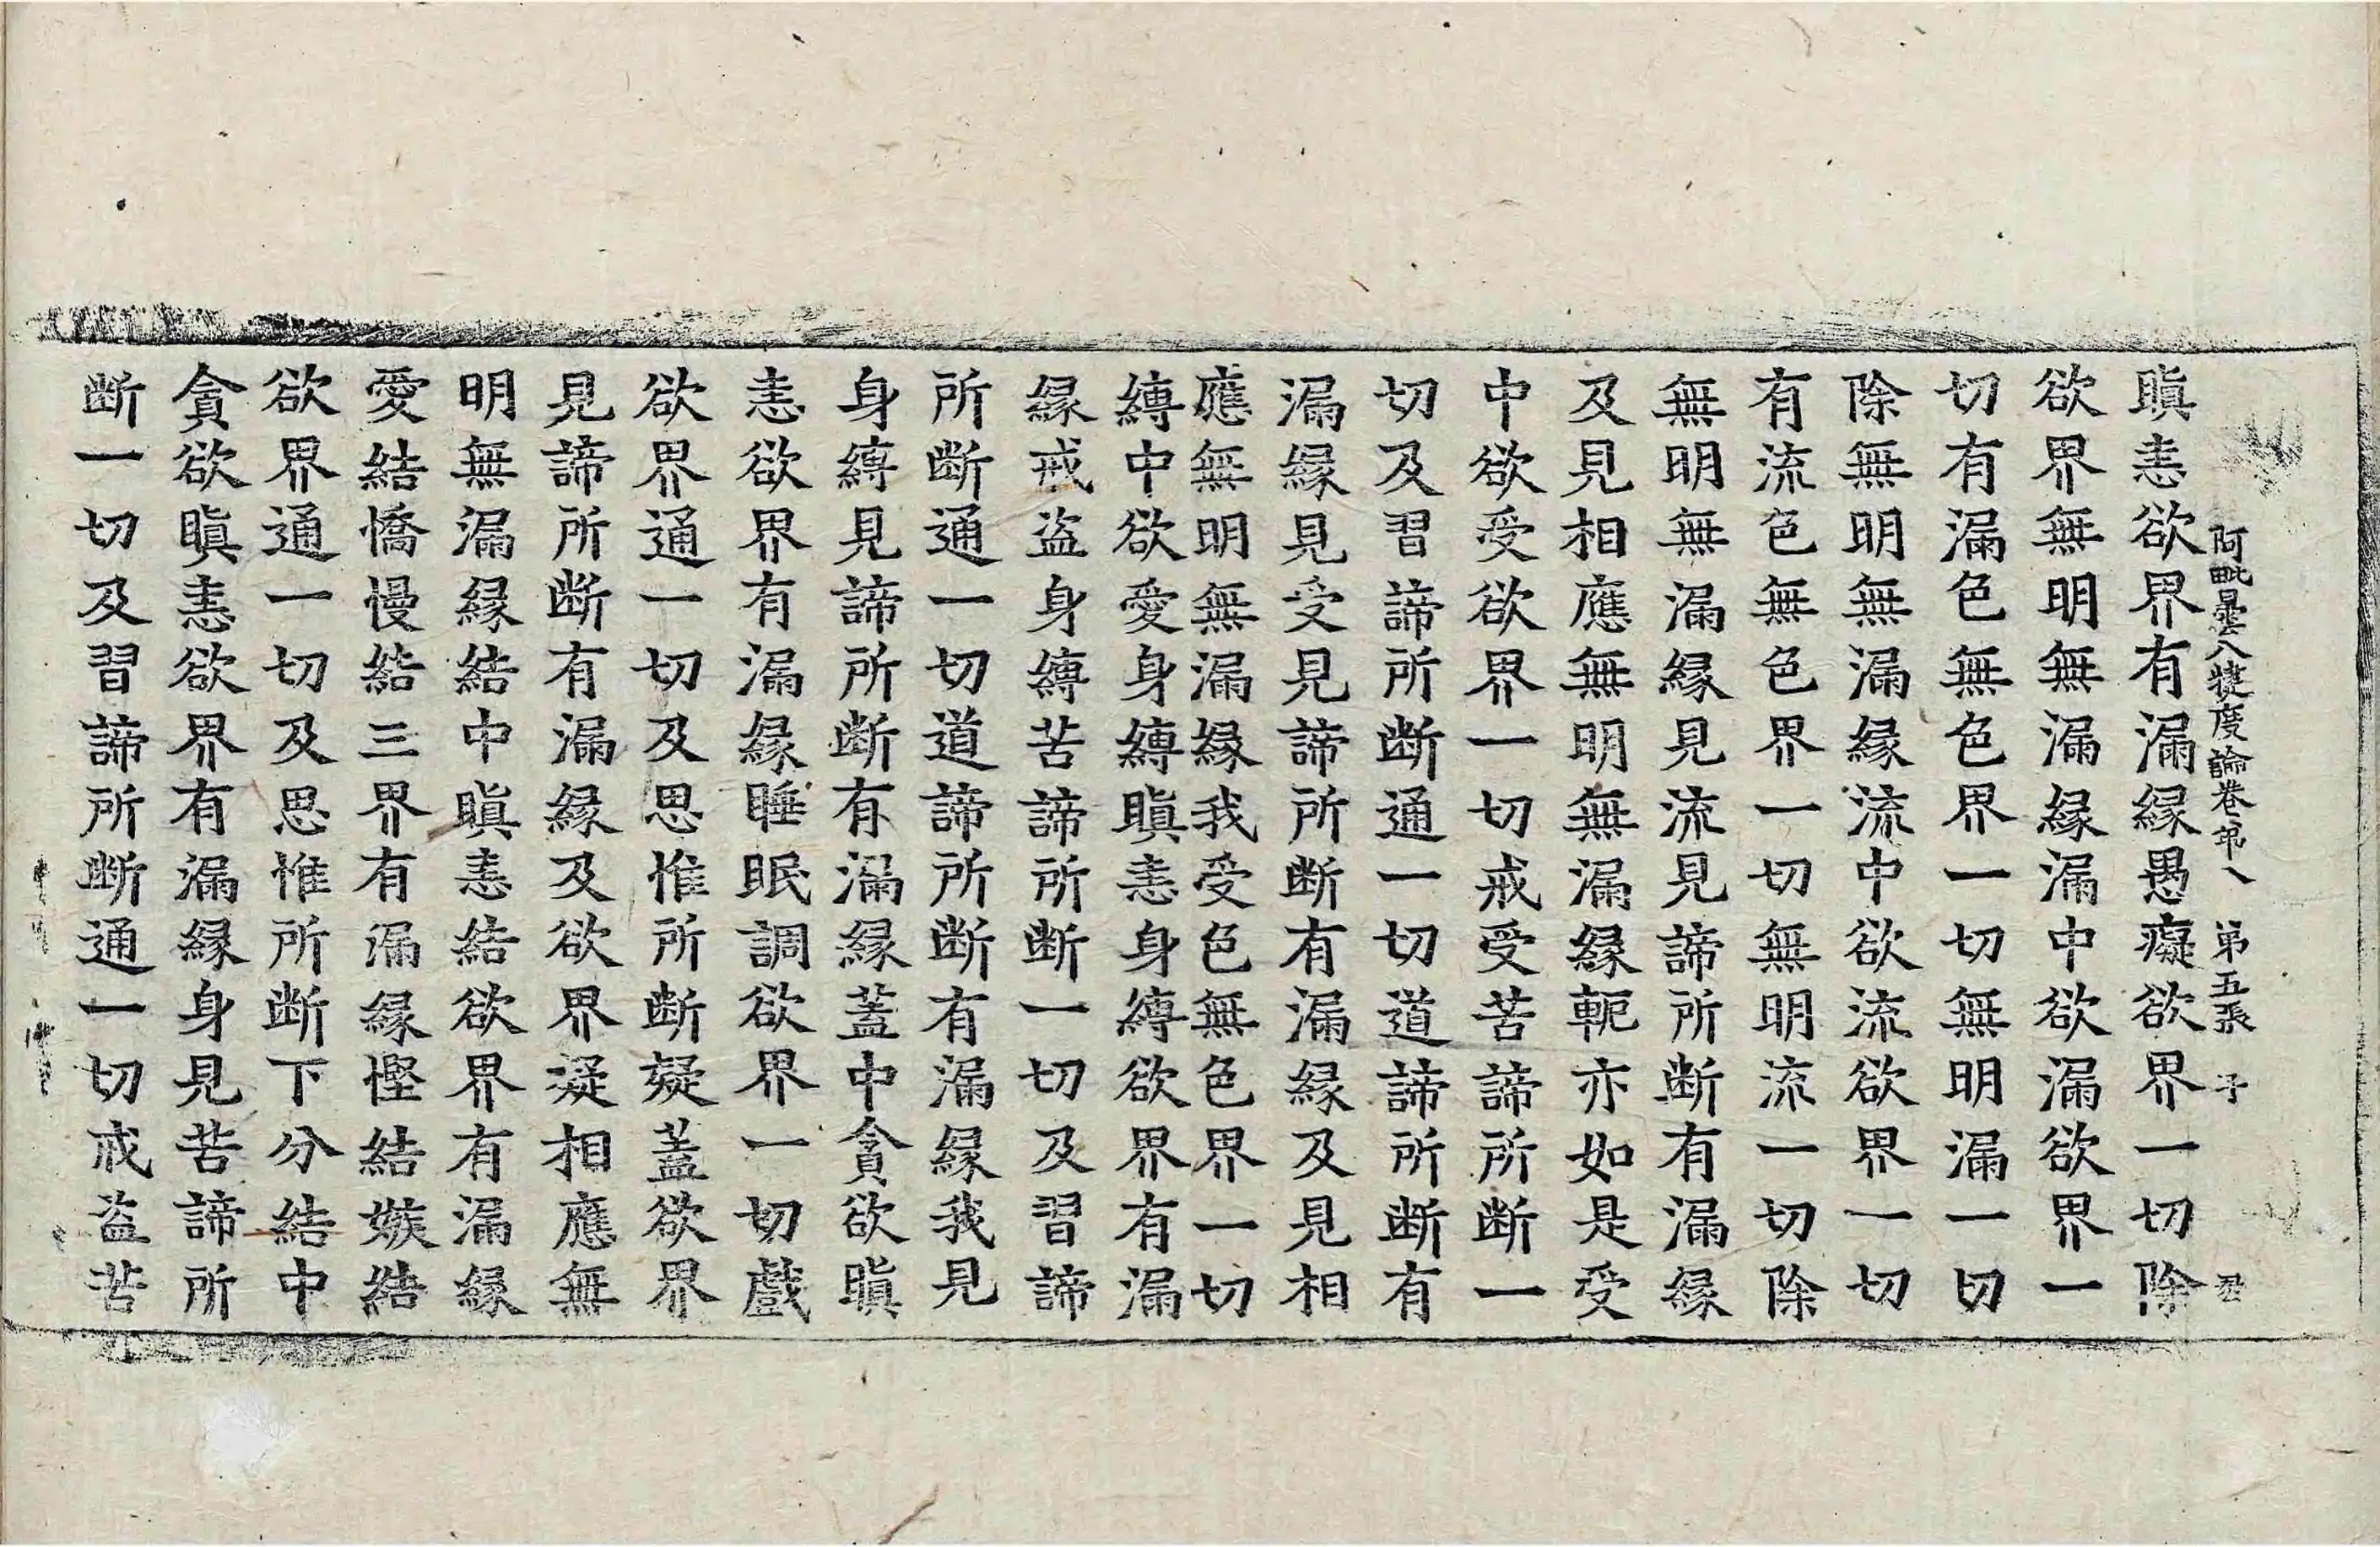 阿毗曇八犍度論卷第八 第五張 子
瞋恚欲界有漏緣愚癡欲界一切除
欲界無明無漏緣漏中欲漏欲界一
切有漏色無色界一切無明漏一切
除無明無漏緣流中欲流欲界一切
有流色無色界一切無明流一切除
無明無漏緣見流見諦所断有漏緣
及見相應無明無漏緣軛亦如是受
中欲受欲界一切戒受苦諦所断一
切及習諦所断通一切道諦所断有
漏緣見受見諦所断有漏緣及見相
應無明無漏緣我受色無色界一切
縛中欲愛身縛瞋恚身縛欲界有漏
緣戒盗身縛苦諦所断一切及習諦
所断通一切道諦所断有漏緣我見
身縛見諦所断有漏緣蓋中貪欲瞋
恚欲界有漏緣睡眠調欲界一切戲
欲界通一切及思惟所断疑蓋欲界
見諦所断有漏緣及欲界疑相應無
明無漏緣結中瞋恚結欲界有漏緣
愛結憍慢結三界有漏緣慳結嫉結
欲界通一切及思惟所断下分結中
貪欲瞋恚欲界有漏緣身見苦諦所
断一切及習諦所断通一切戒盗苦